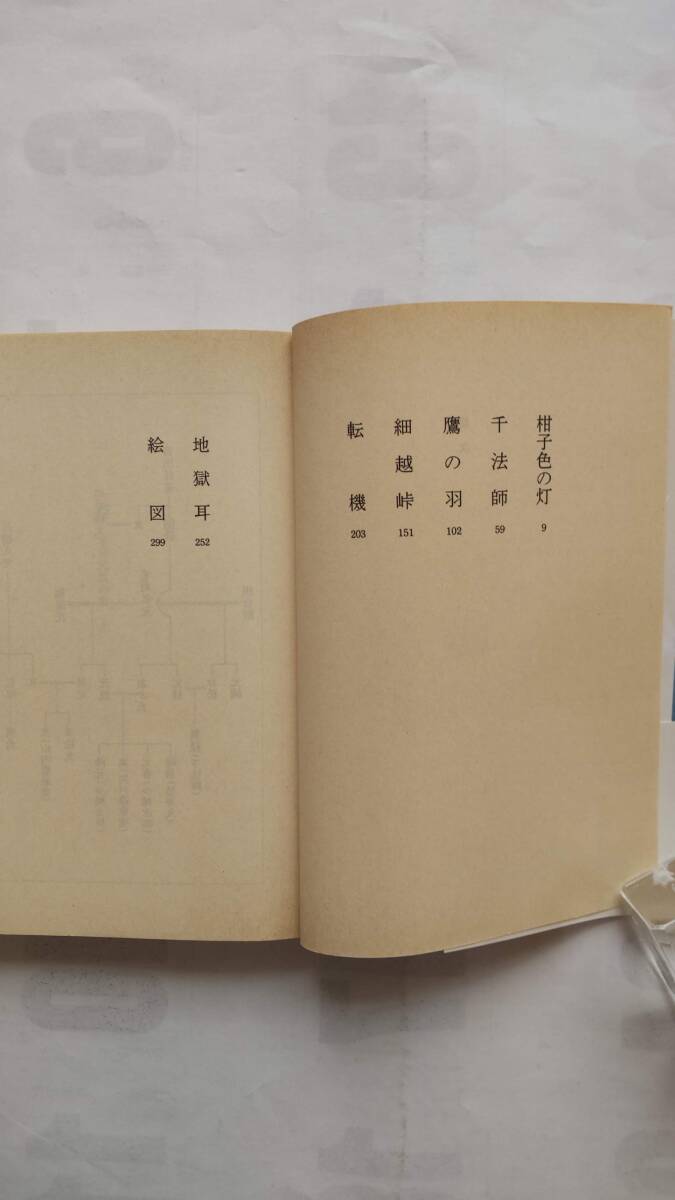 柑子色の灯 9
千法師 59
鷹の羽 102
細越峠 151
転機 203
地獄耳 252
絵図 299